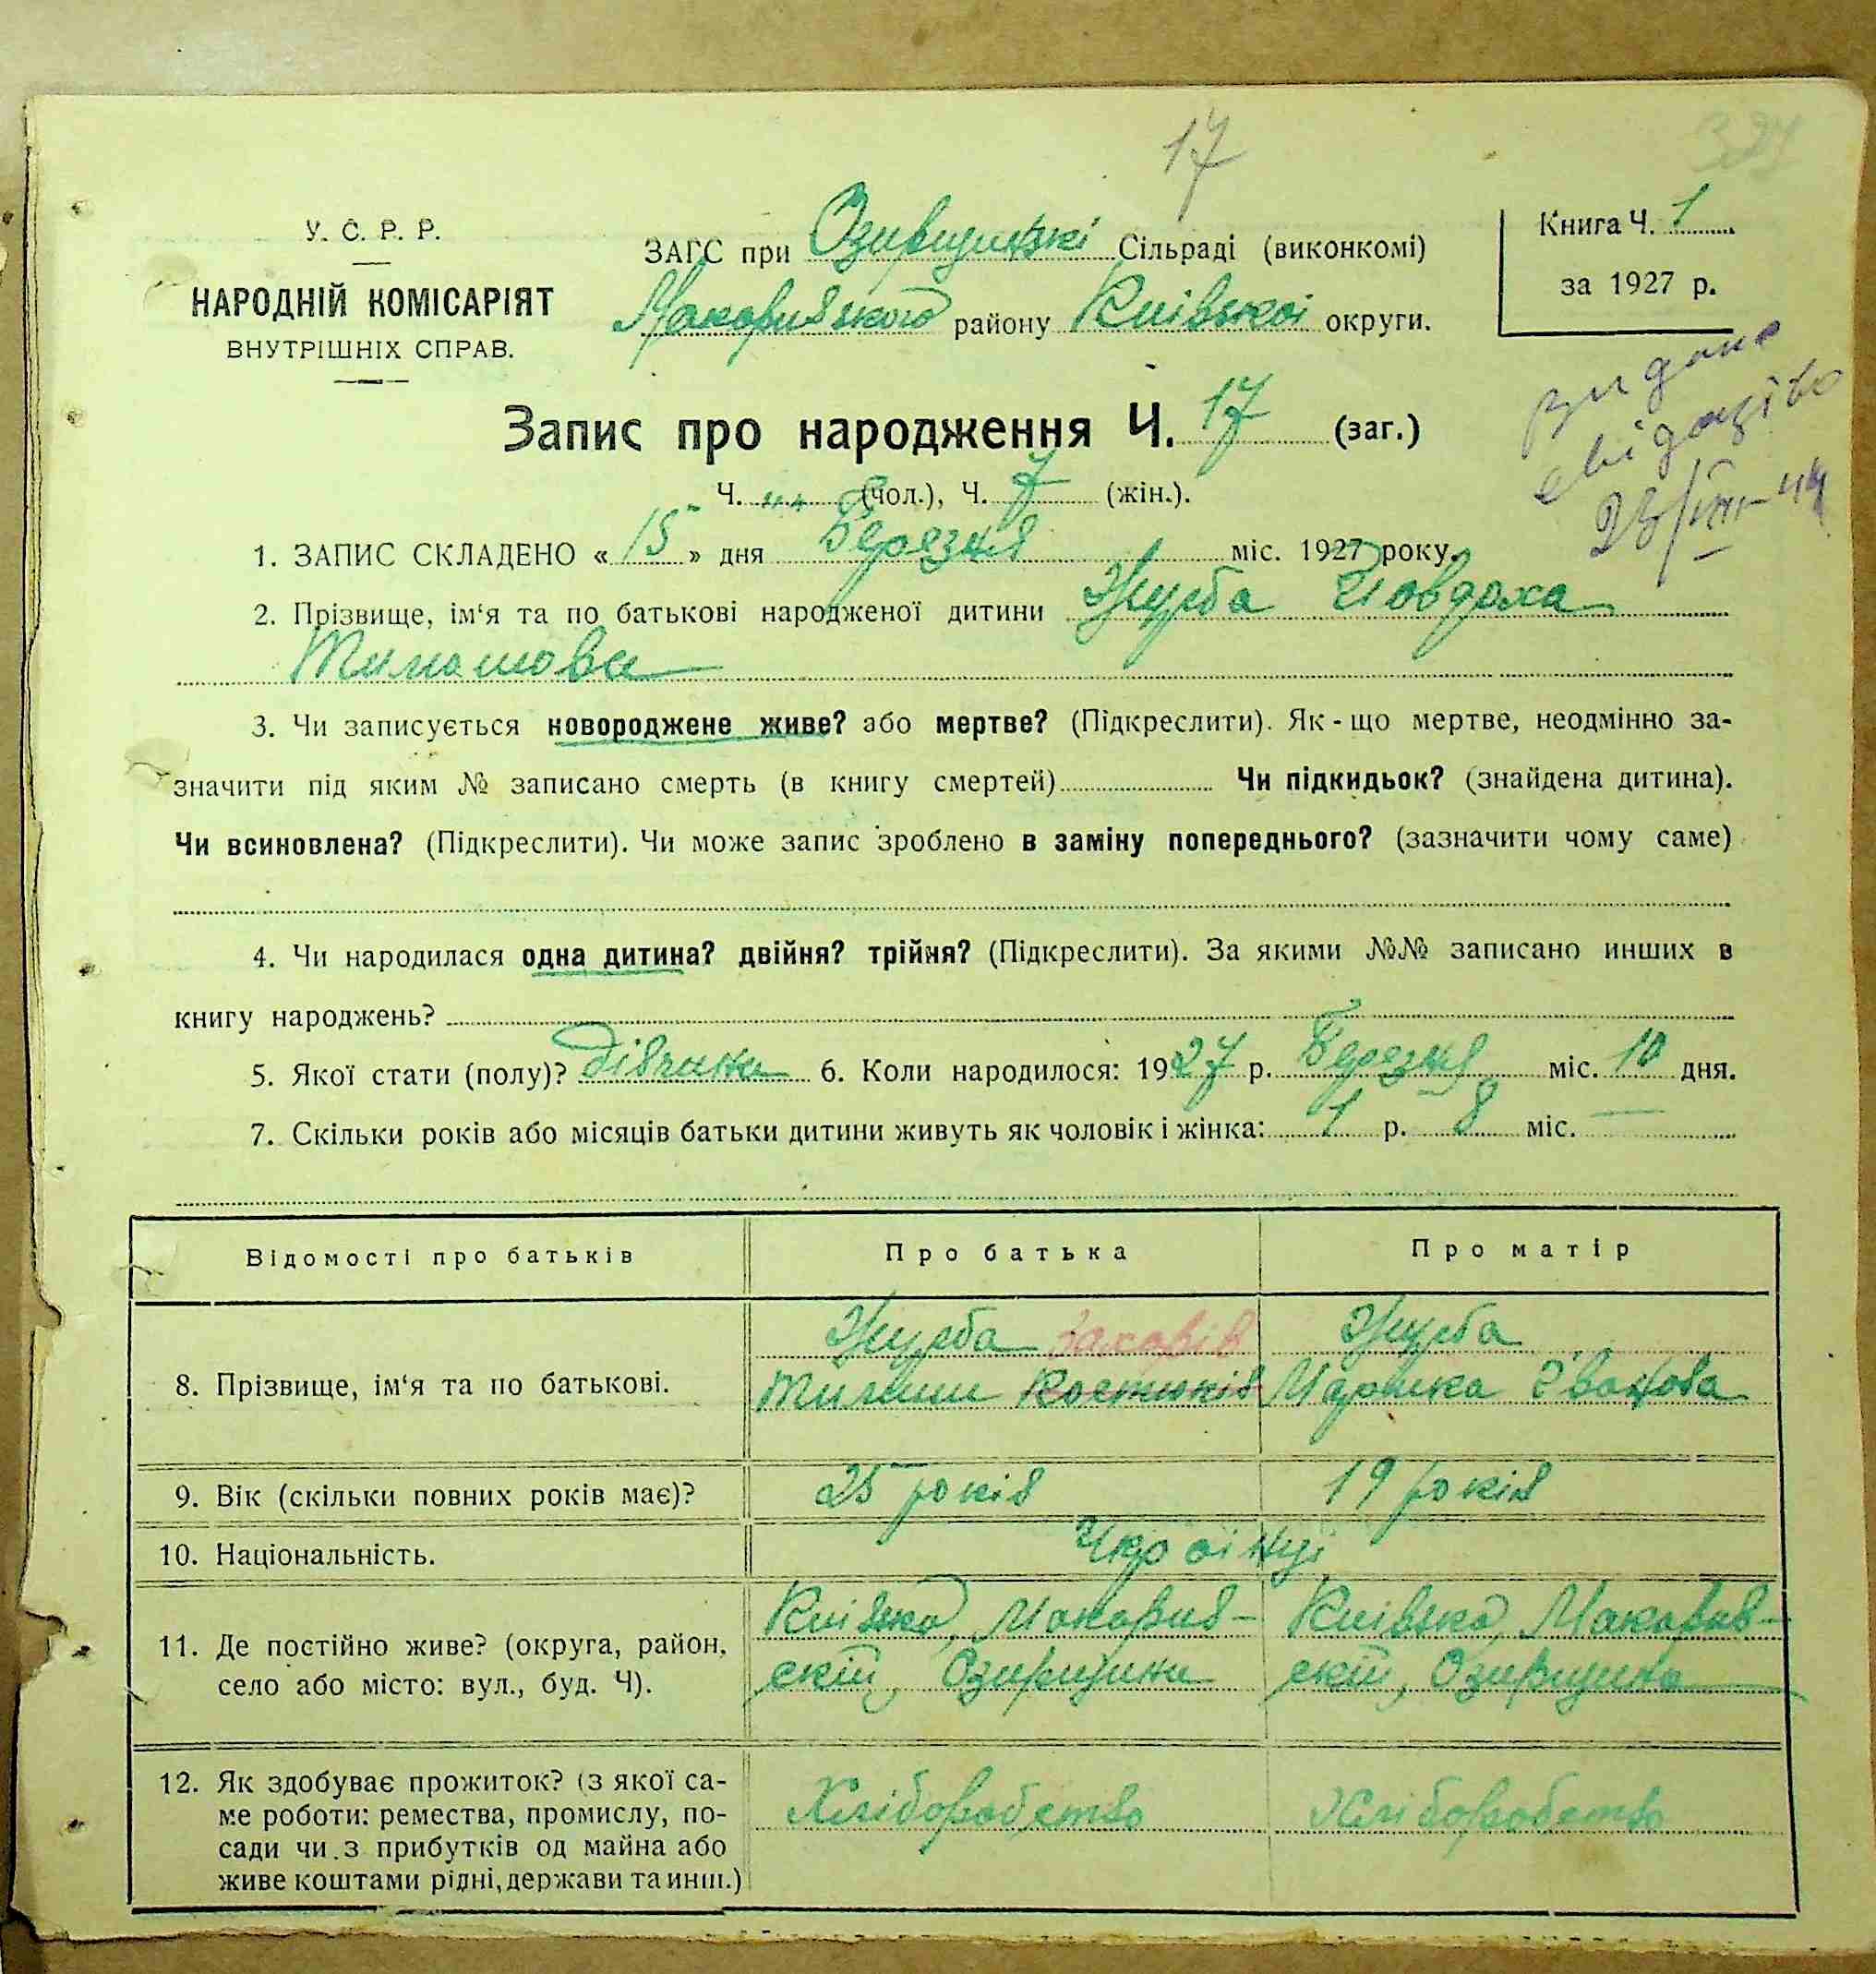 17
У. С. Р. Р.
НАРОДНІЙ КОМІСАРІЯТ
ВНУТРІШНІХ СПРАВ.
ЗАГС при Озирщинскі Сільраді (виконкомі)
Макаривского району Київскої округи.
Книга Ч. 1
за 1927 р.
видане
свідоцтво
Запис про народження Ч. 17 (заг.)
Ч. (чол.), Ч. 7 (жін.).
1. ЗАПИС СКЛАДЕНО « 15 » дня Березня міс. 1927 року.
2. Прізвище, ім‘я та по батькові народженої дитини Журба Йовдоха
Тимошова
3. Чи записується новороджене живе? або мертве? (Підкреслити). Як-що мертве, неодмінно за-
значити під яким № записано смерть (в книгу смертей) Чи підкидьок? (знайдена дитина).
Чи всиновлена? (Підкреслити). Чи може запис зроблено в заміну попереднього? (зазначити чому саме)
4. Чи народилася одна дитина? двійня? трійня? (Підкреслити). За якими №№ записано инших в
книгу народжень?
5. Якої стати (полу)? дівчина 6. Коли народилося: 1927 р. Березня міс. 10 дня.
7. Скільки років або місяців батьки дитини живуть як чоловік і жінка: 1 р. 8 міс.
Відомості про батьків Про батька Про матір
8. Прізвище, ім‘я та по батькові.
Журба Захарів
Тимиш Костюків
Журба
Марийка Іванова
9. Вік (скільки повних років має)? 25 років 19 років
10. Національність. Украінці
11. Де постійно живе? (округа, район,
село або місто: вул., буд. Ч).
Київска, Макарив-
скій, Озирщина
Київска, Макарив-
скій, Озирщина
12. Як здобуває прожиток? (з якої са-
ме роботи: ремества, промислу, по-
сади чи з прибутків од майна або
живе коштами рідні, держави та инш.)
Хліборобство
Хліборобство